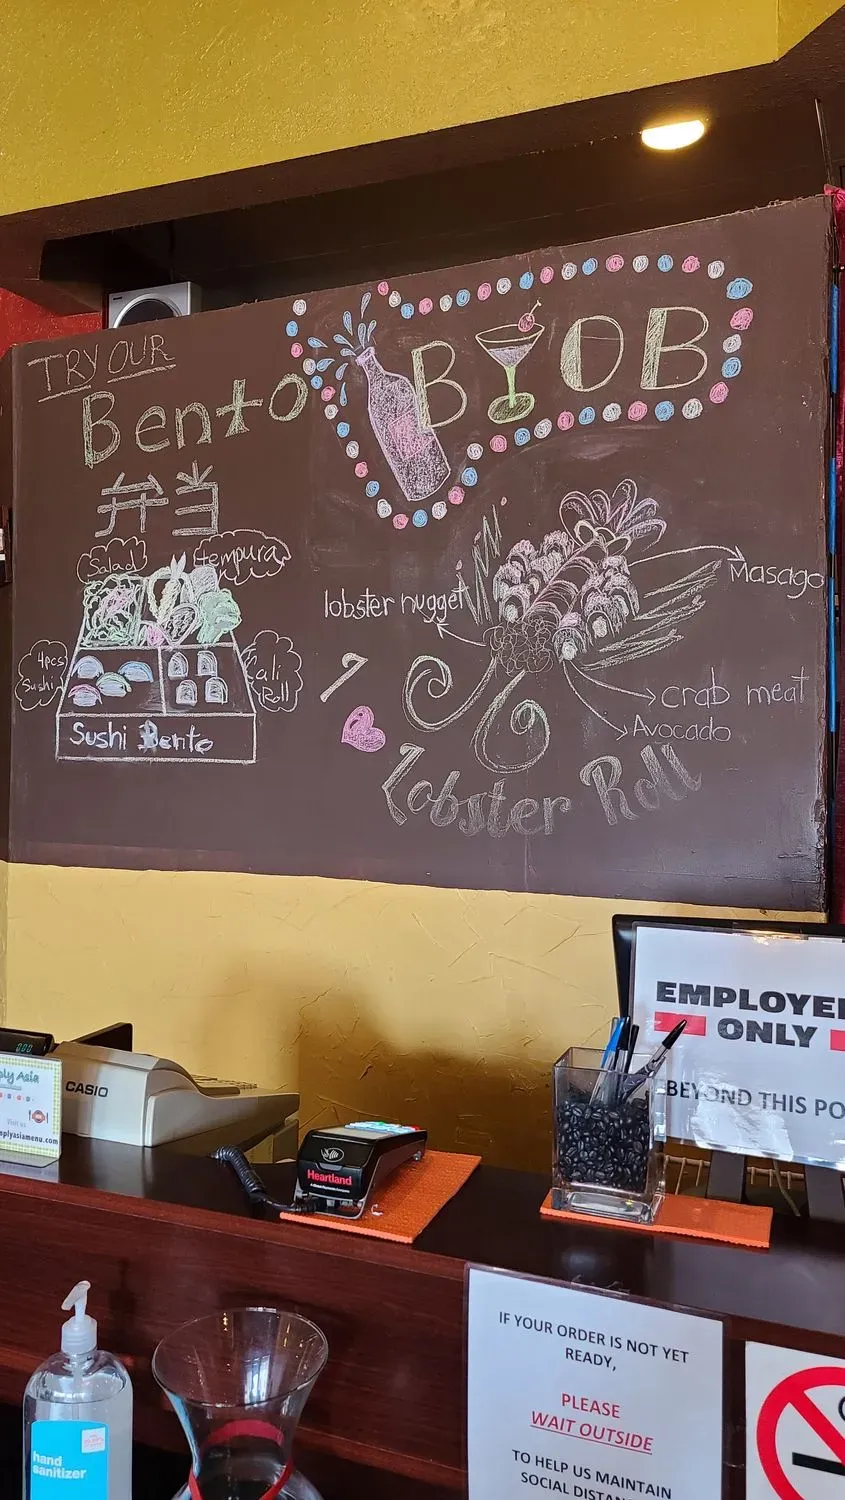 TRY OUR
Bento
弁当
BYOB
Salad
tempura
4pcs
Sushi
Cali
Roll
Sushi Bento
lobster nugget
Masago
crab meat
Avocado
Lobster Roll
EMPLOYE
ONLY
BEYOND THIS PO
ply Asia
Visit us
plyasiamenu.com
CASIO
Heartland
IF YOUR ORDER IS NOT YET
READY,
PLEASE
WAIT OUTSIDE
TO HELP US MAINTAIN
SOCIAL DISTAN
hand
sanitizer